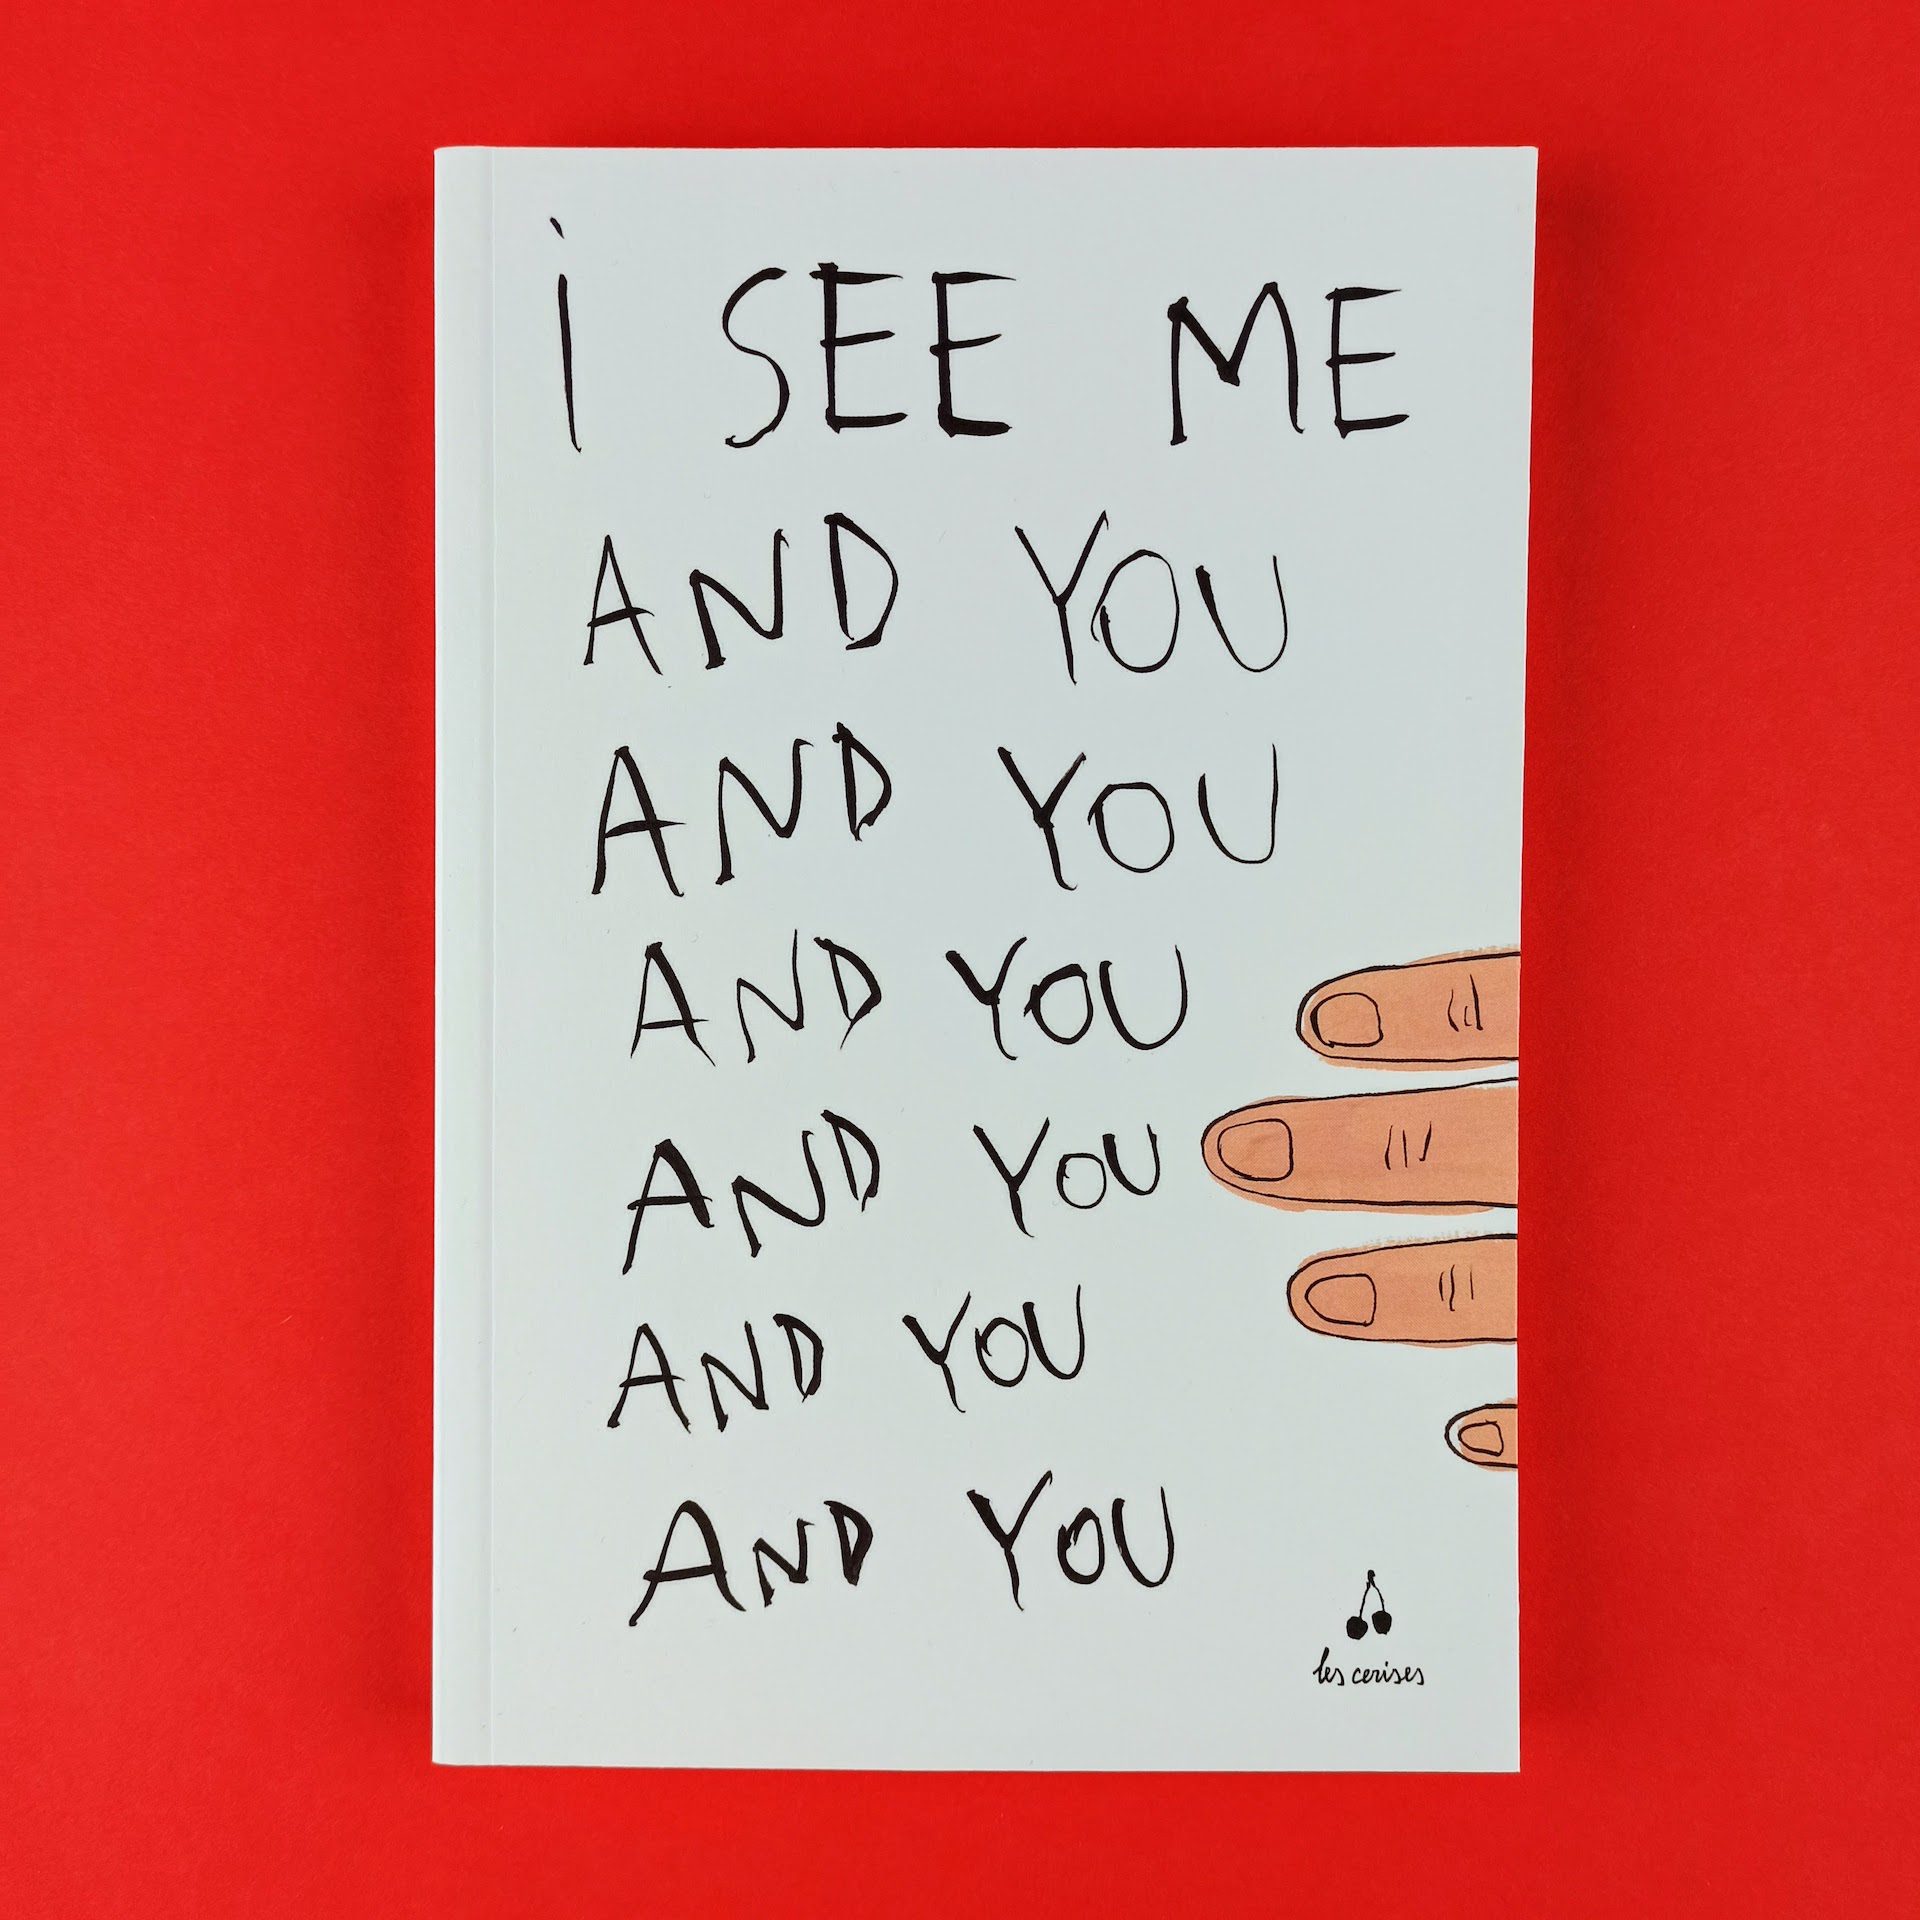 i SEE ME
AND YOU
AND YOU
AND YOU
AND YOU
AND YOU
AND YOU
les cerises